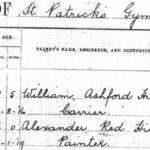 OF St. Patrick's Gym
AGE.
PARENT'S NAME, RESIDENCE, AND OCCUPATION
5 William, Ashford
8-76 Carrier
0 Alexander, Red Hi
1-79 Painter